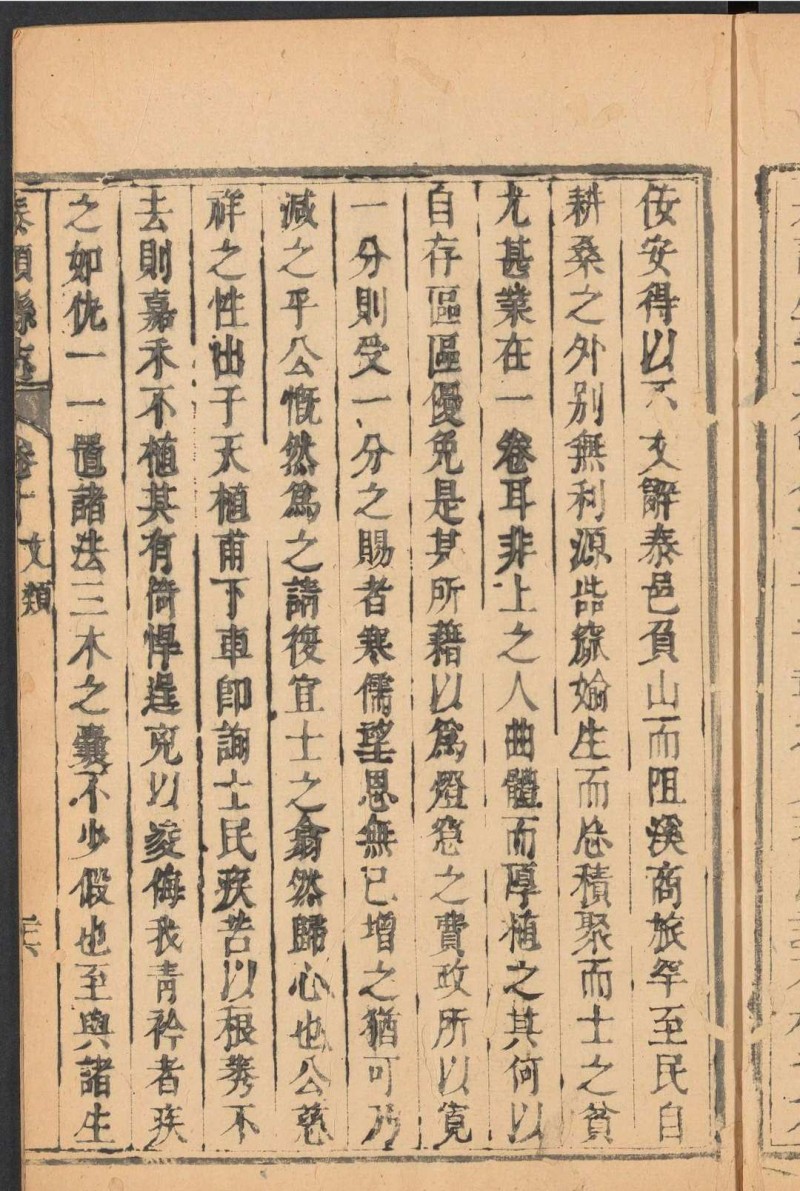 佞安得以不文辭泰邑負山而阻溪商旅罕至民自
耕桑之外別無利源呰窳媮生而忘積聚而士之貧
尤甚業在一卷耳非上之人曲體而厚植之其何以
自存區區優免是其所藉以爲燈窓之費政所以寬
一分則受一分之賜者寒儒望恩無已增之猶可乃
減之乎公慨然爲之請復宜士之翕然歸心也公慈
祥之性出于天植甫下車卽詢士民疾苦以稂莠不
去則嘉禾不植其有倚悍逞兇以凌侮我青衿者疾
之如仇一一置諸法三木之囊不少假也至與諸生
泰順縣志 卷十 文類